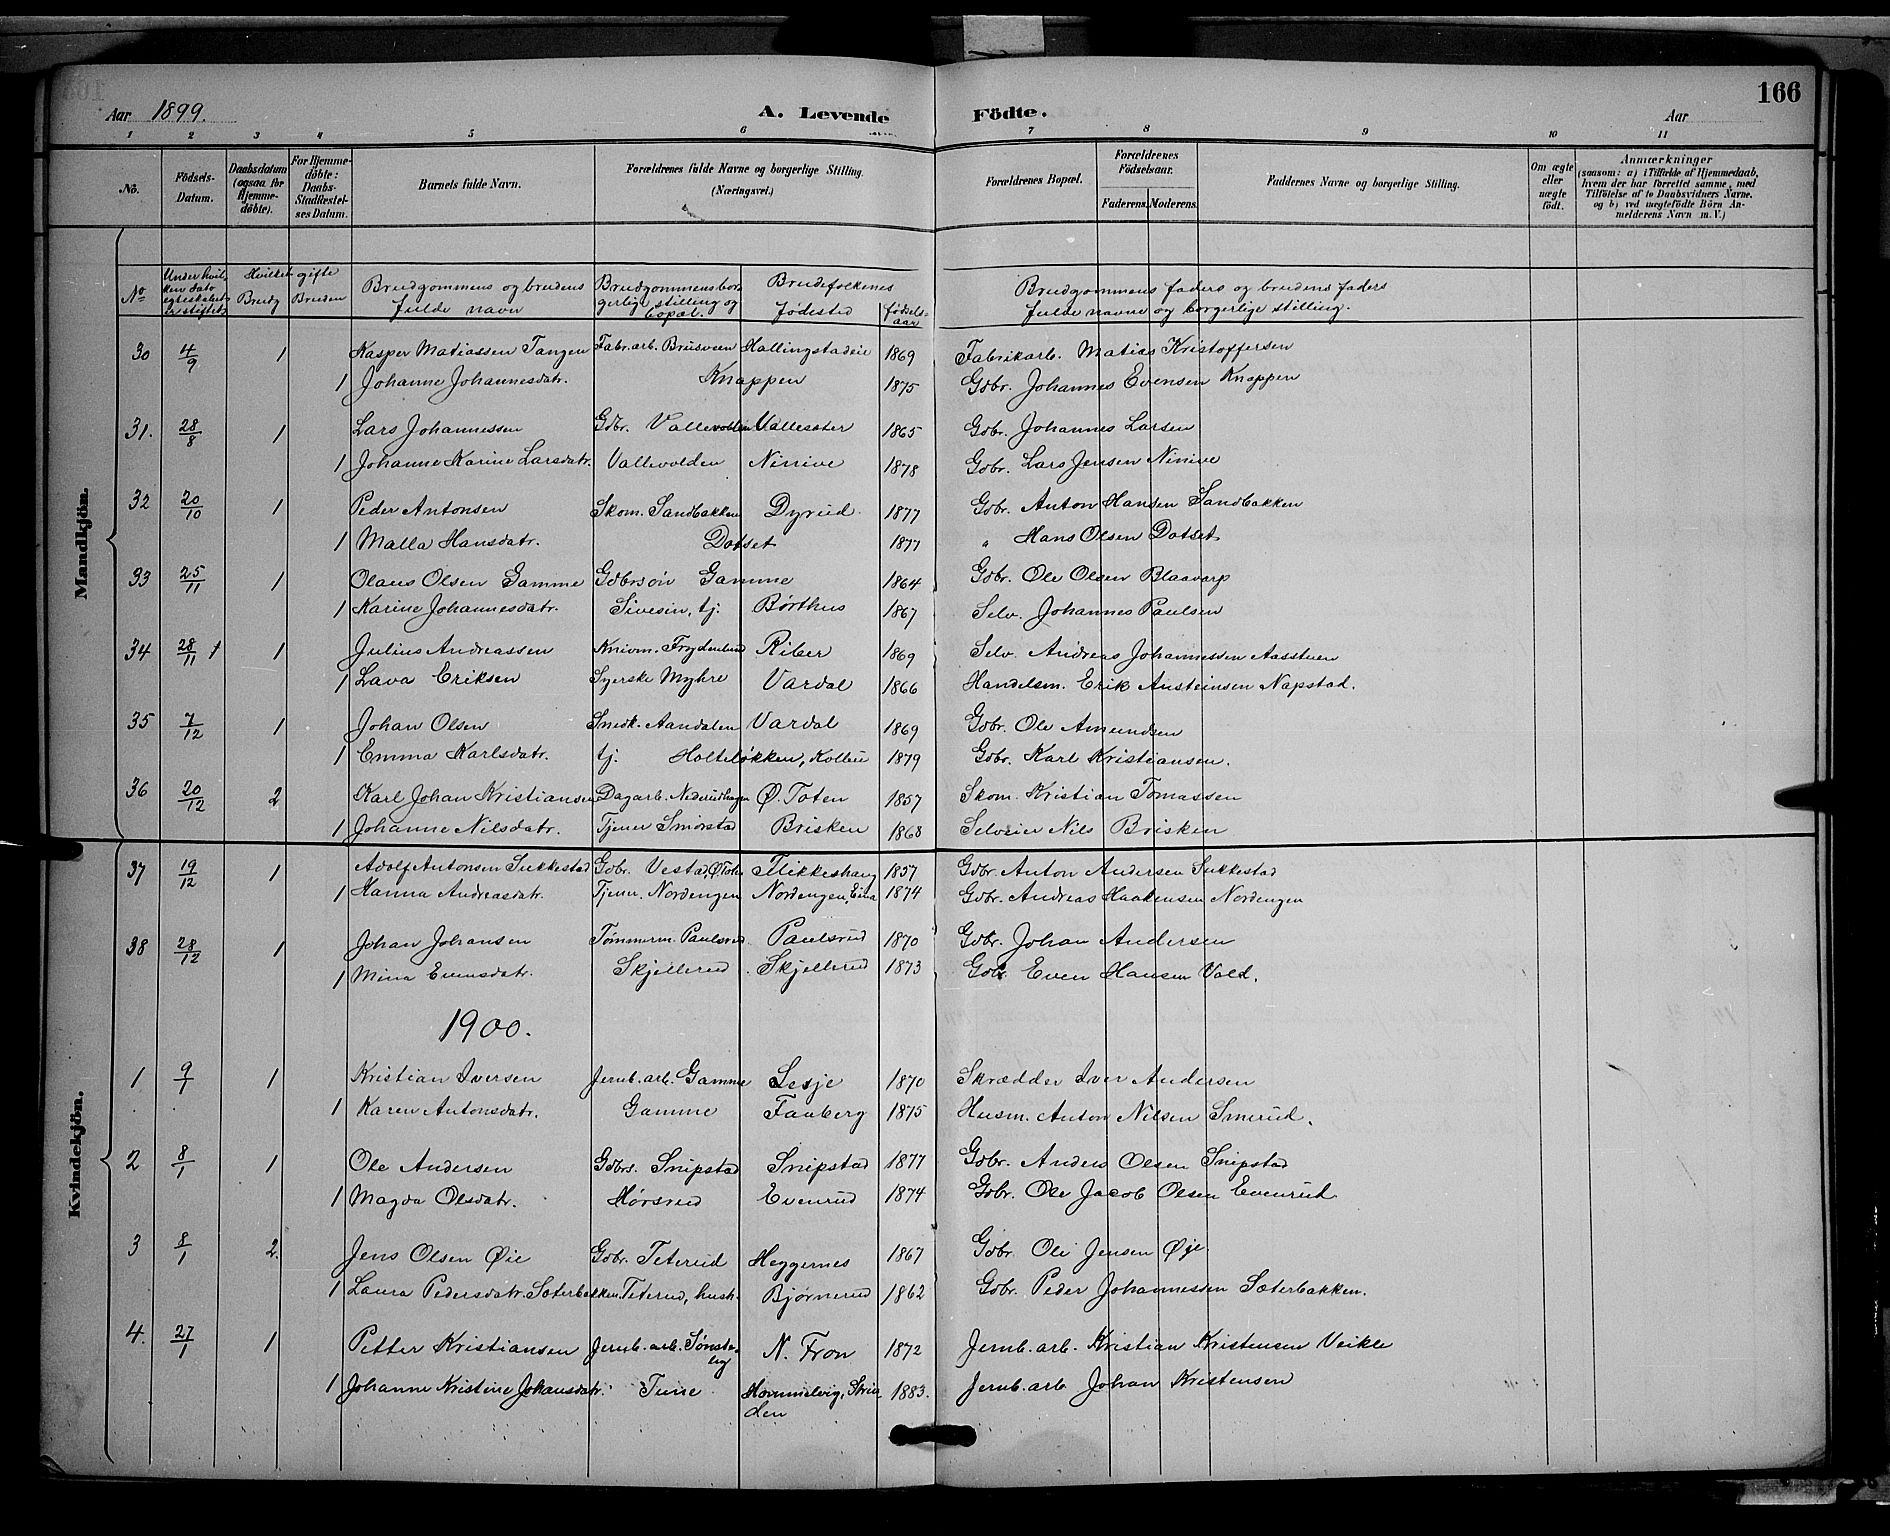 Aar 1899. A. Levende Födte. Aar 166
1 2 3 4 5 6 7 8 9 10 11
No. Födsels-Datum. Daabsdatum (ogsaa for Hjemme-döbte). For Hjemme-döbte: Daabs-Stadfestel-ses Datum. Barnets fulde Navn. Forældrenes fulde Navne og borgerlige Stilling. (Næringsvei.) Forældrenes Bopæl. Forældrenes Födselsaar. Faderens. Moderens. Faddernes Navne og borgerlige Stilling. Om ægte eller uægte födt. Anmærkninger (saasom: a) i Tilfælde af Hjemmedaab, hvem der har forrettet samme, med Tilföielse af to Daabsvidners Navne, og b) ved uægtefödte Börn An-melderens Navn m. V.)
Mandkjön.
No Under hvil-ken dato egteskabet er stiftet Hvilket gifte Brudg Bruden Brudgommens og brudens fulde navn Brudgommens bor-gerlige stilling og bopæl. Brudefolkenes fødested fødsels-aar Brudgommens faders og brudens faders fulde navne og borgerlige stilling.
30 4/9 1 Kasper Matiassen Tangen Fabr.arb. Brusveen Hallingstadeie 1869 Fabrikarb. Matias Kristoffersen
1 Johanne Johannesdatr. Knappen 1875 Gdbr. Johannes Evensen Knappen
31. 28/8 1 Lars Johannessen Gdbr. Vallevolden Vallesæter 1865 Gdbr. Johannes Larsen
1 Johanne Karine Larsdatr. Vallevolden Ninive 1878 Gdbr. Lars Jensen Ninive
32 20/10 1 Peder Antonsen Skom. Sandbakken Dyrud. 1877 Gdbr. Anton Hansen Sandbakken
1 Malla Hansdatr. Dotset 1877 " Hans Olsen Dotset
33 25/11 1 Olaus Olsen Gamme Gdbrsøn Gamme 1864 Gdbr. Ole Olsen Blaavarp
1 Karine Johannesdatr. Sivesin, tj. Børthus 1867 Selv. Johannes Paulsen
34 28/11 1 Julius Andreassen Knivm. Frydenlund Riber 1869 Selv. Andreas Johannessen Aasstuen
1 Lava Eriksen Syerske Myhre Vardal 1866 Handelsm. Erik Ansteinsen Napstad.
35 7/12 1 Johan Olsen Snedk. Aandalen Vardal 1869 Gdbr. Ole Amundsen
1 Emma Karlsdatr. tj. Holteløkken, Kolbu 1879 Gdbr. Karl Kristiansen.
36 20/12 2 Karl Johan Kristiansen Dagarb. Nederudhagen Ø. Toten 1857 Skom. Kristian Tomassen
1 Johanne Nilsdatr. Tjener Smørstad Brisken 1868 Selveier Nils Brisken
37 19/12 1 Adolf Antonsen Sukkestad Gdbr. Vestad, Ø. Toten Flikkeshaug 1857 Gdbr. Anton Andersen Sukkestad
1 Hanna Andreasdatr. Tjener. Nordengen Nordengen, Eina 1874 Gdbr. Andreas Haakensen Nordengen
38 28/12 1 Johan Johansen Tømmerm. Paulsrud. Paulsrud 1870 Gdbr. Johan Andersen
1 Mina Evensdatr. Skjellerud. Skjellerud 1873 Gdbr. Even Hansen Vold.
1900.
Kvindekjön.
1 9/1 1 Kristian Iversen Jernb. arb. Gamme Lesje 1870 Skrædder Iver Andersen
1 Karen Antonsdatr. Gamme Faaberg 1875 Husm. Anton Nilsen Smerud.
2 8/1 1 Ole Andersen Gdbrs. Snipstad Snipstad 1877 Gdbr. Anders Olsen Snipstad
1 Magda Olsdatr. Hørsrud Evenrud 1874 Gdbr. Ole Jacob Olsen Evenrud
3 8/1 2. Jens Olsen Øie Gdbr. Teterud Heggernes 1867 Gdbr. Ole Jensen Øje.
1 Laura Pedersdatr. Sæterbakken. Teterud, hush. Bjørnerud 1862 Gdbr. Peder Johannessen Sæterbakken.
4. 27/1 1 Petter Kristiansen Jernb. arb. Sønste-by N. Fron 1872 Jernb. arb. Kristian Kristensen Veikle
1 Johanne Kristine Johansdatr. Tune Hommelvig, Strin-den 1883. Jernb. arb. Johan Kristensen